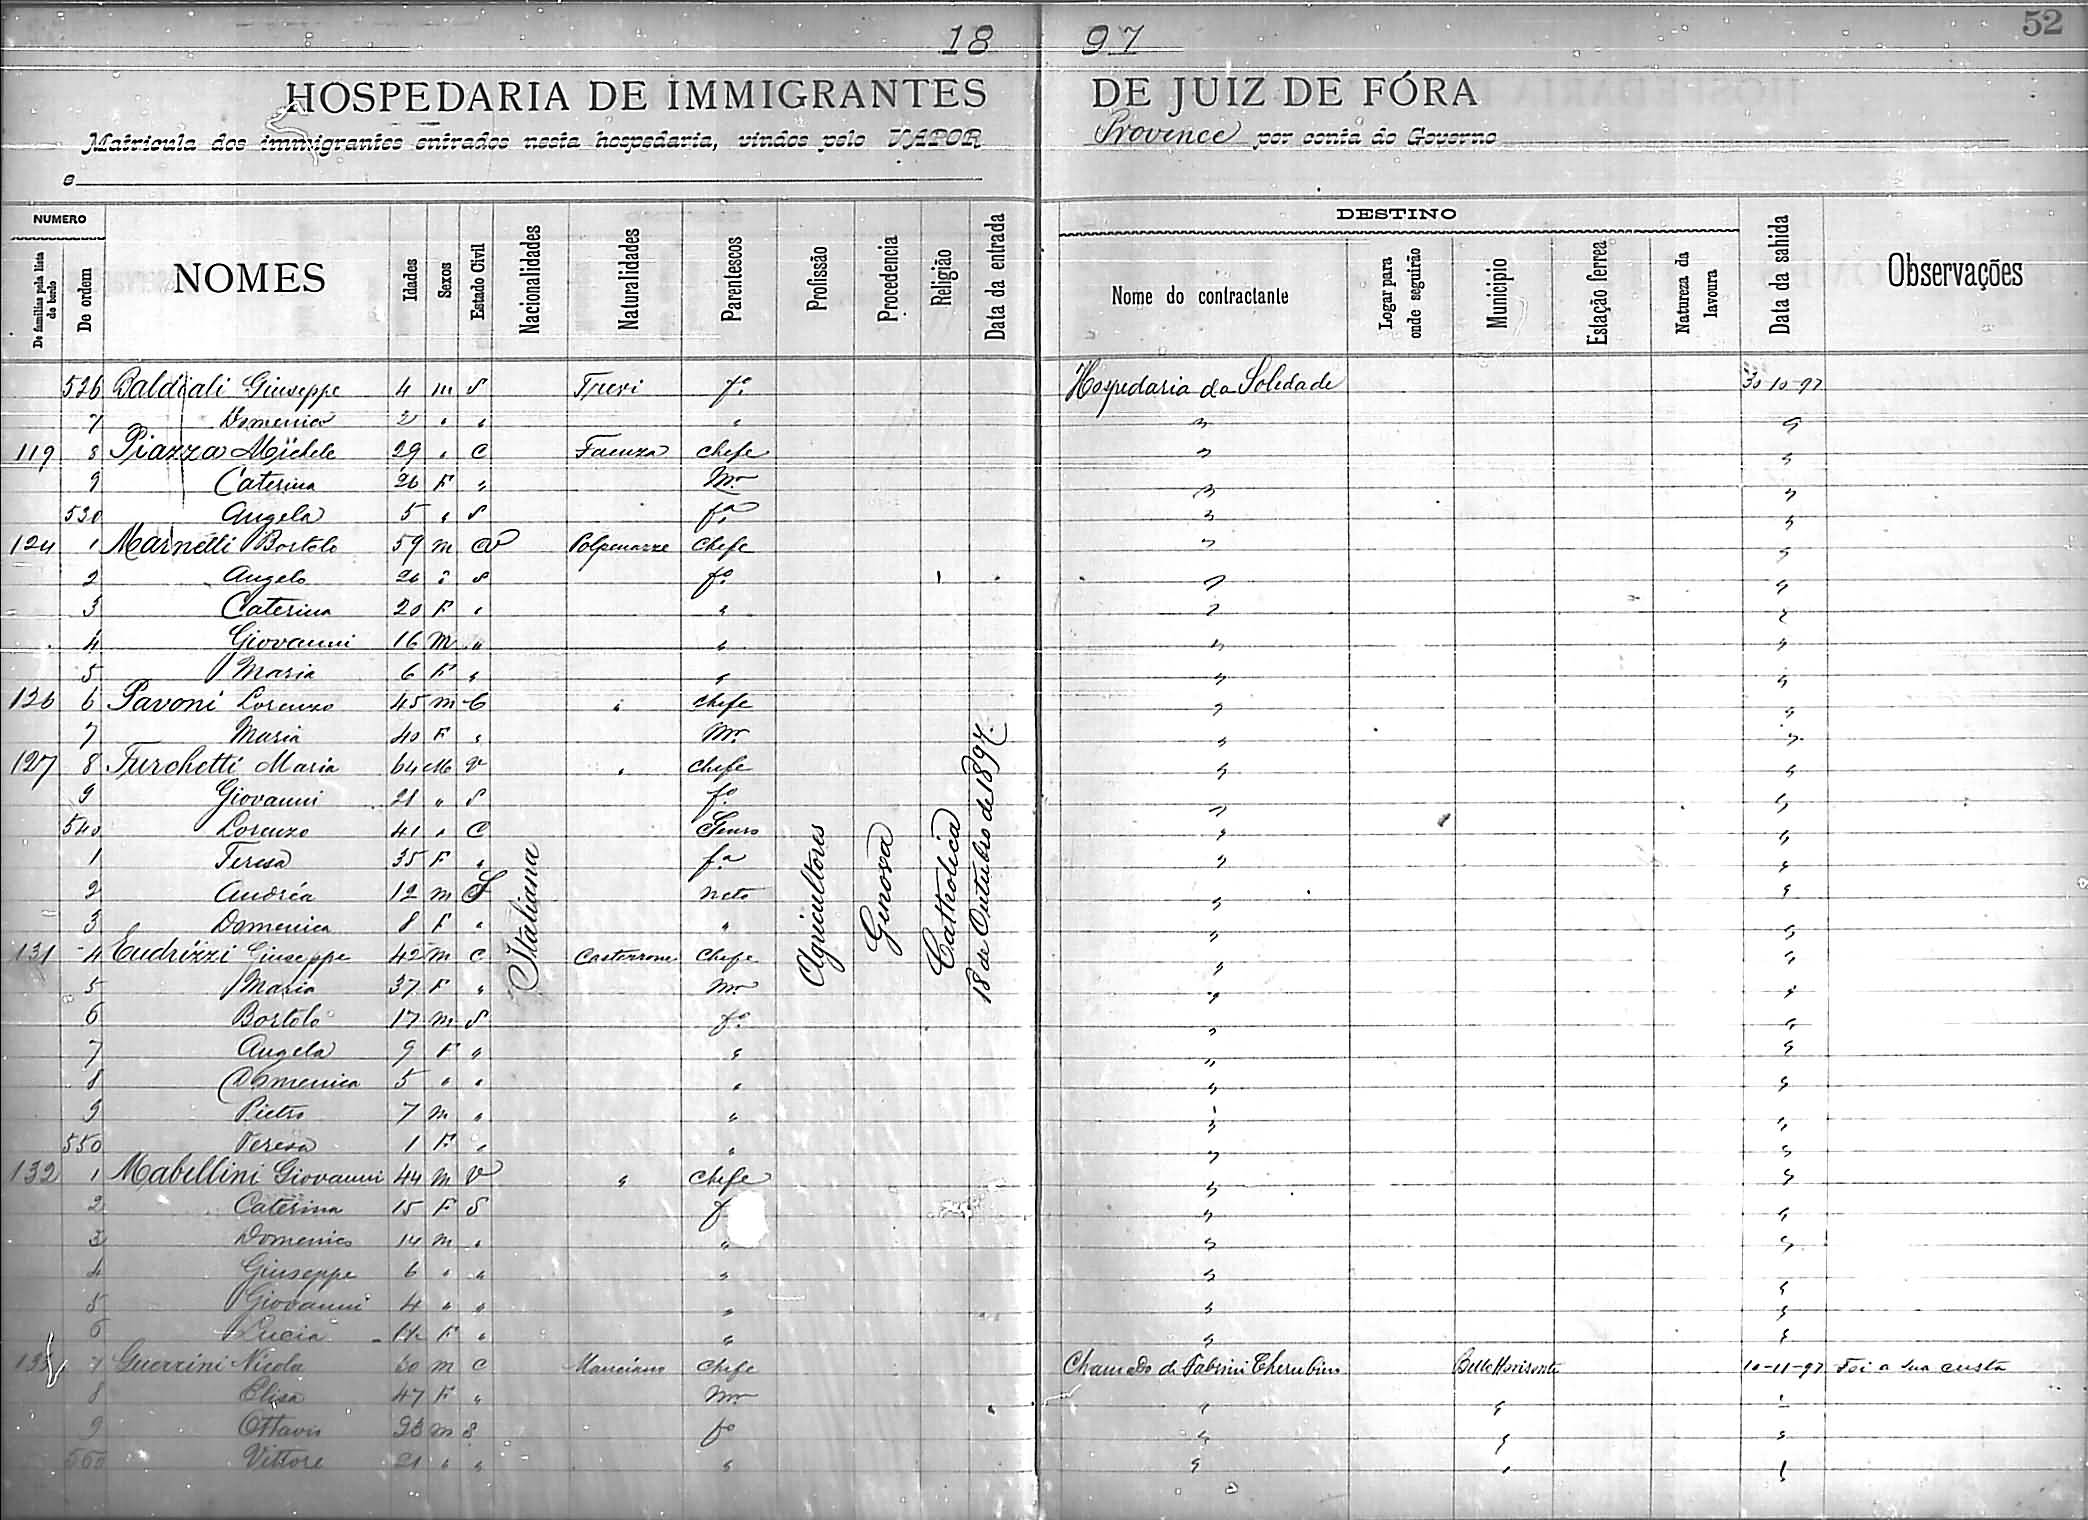 52
18 97
HOSPEDARIA DE IMMIGRANTES DE JUIZ DE FÓRA
Matricula dos immigrantes entrados nesta hospedaria, vindos pelo VAPOR Provence por conta do Governo
e
NUMERO
De familias pela lista de bordo
De ordem
NOMES
Idades
Sexos
Estado Civil
Nacionalidades
Naturalidades
Parentescos
Profissão
Procedencia
Religião
Data da entrada
DESTINO
Nome do contractante
Logar para onde seguirão
Municipio
Estação ferrea
Natureza da lavoura
Data da sahida
Observações
526 Giuseppe 4 m S Trevi fo. Hospedaria da Soledade 30 10-97
7 Domenica 2 " " " " "
119 8 Piazza Michele 29 " C Faenza Chefe " "
9 Caterina 26 F " Mr " "
530 Angela 5 " S fa " "
124 1 Marnelli Bortolo 59 m Polpenazze Chefe " "
2 Angelo 26 " S fo. " "
3 Caterina 20 F " " " "
4 Giovanni 16 M " " " "
5 Maria 6 F " " " "
126 6 Pavoni Lorenzo 45 m C " Chefe " "
7 Maria 40 F " Mr " "
127 8 Turchetti Maria 64 M V " Chefe " "
9 Giovanni 21 " S fo. " "
540 Lorenzo 41 " C Genro " "
1 Teresa 35 F " fa " "
2 Andréa 12 m S neto " "
3 Domenica 8 F " " " "
131 4 Eudrizzi Giuseppe 42 m C Chefe " "
5 Maria 37 F " Mr " "
6 Bortolo 17 m S fo. " "
7 Angela 9 F " " " "
8 Domenica 5 " " " " "
9 Pietro 7 m " " " "
550 Teresa 1 F " " " "
132 1 Mabellini Giovanni 44 m V " Chefe " "
2 Caterina 15 F S f " "
3 Domenico 14 m " " " "
4 Giuseppe 6 " " " " "
5 Giovanni 4 " " " " "
6 Lucia F " " " "
7 Guerrini Nicola 50 m C Manciano Chefe Chamado de Fabrini Cherubino Bello Horisonte 10-11-97 Foi a sua custa
8 Elisa 47 F " Mr " " "
9 Ottavio 23 m S fo " " "
560 Vittore 21 " " " " " "
Italiana
Agricultores
Genova
Catholica
18 de Outubro de 1897.